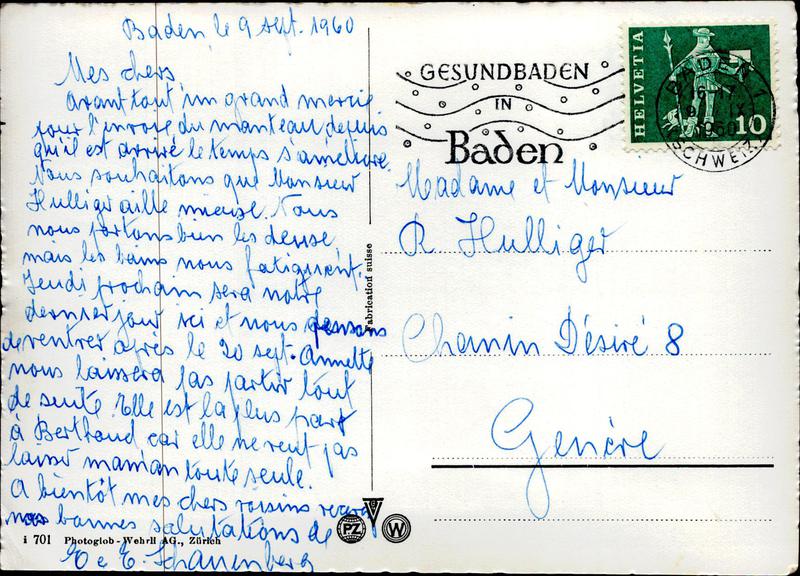 Baden, le 9 sept. 1960
Mes chers,
avant tout un grand mercie
pour l'envoie du manteau, depuis
qu'il est arrivé le temps s'améliore.
Nous souhaitons que Monsieur
Hulliger aille mieuse. Nous
nous portons bien les deuse,
mais les bains nous fatiguent.
Jeudi prochain sera notre
dernier jour ici et nous pensons
de rentrer après le 20 sept. Annette
nous laissera pas partir tout
de suite. Elle est la plus part
à Bertraud car elle ne veut pas
laisser maman toute seule.
A bientôt mes chers voisins recevez
nos bonnes salutations de
E e E. Schauenberg
i 701 Photoglob-Wehrli AG., Zürich
Fabrication suisse
PZ
W
GESUNDBADEN
IN
Baden
HELVETIA
10
BADEN 1
1960
(SCHWEIZ)
Madame et Monsieur
R Hulliger
Chemin Désiré 8
Genève